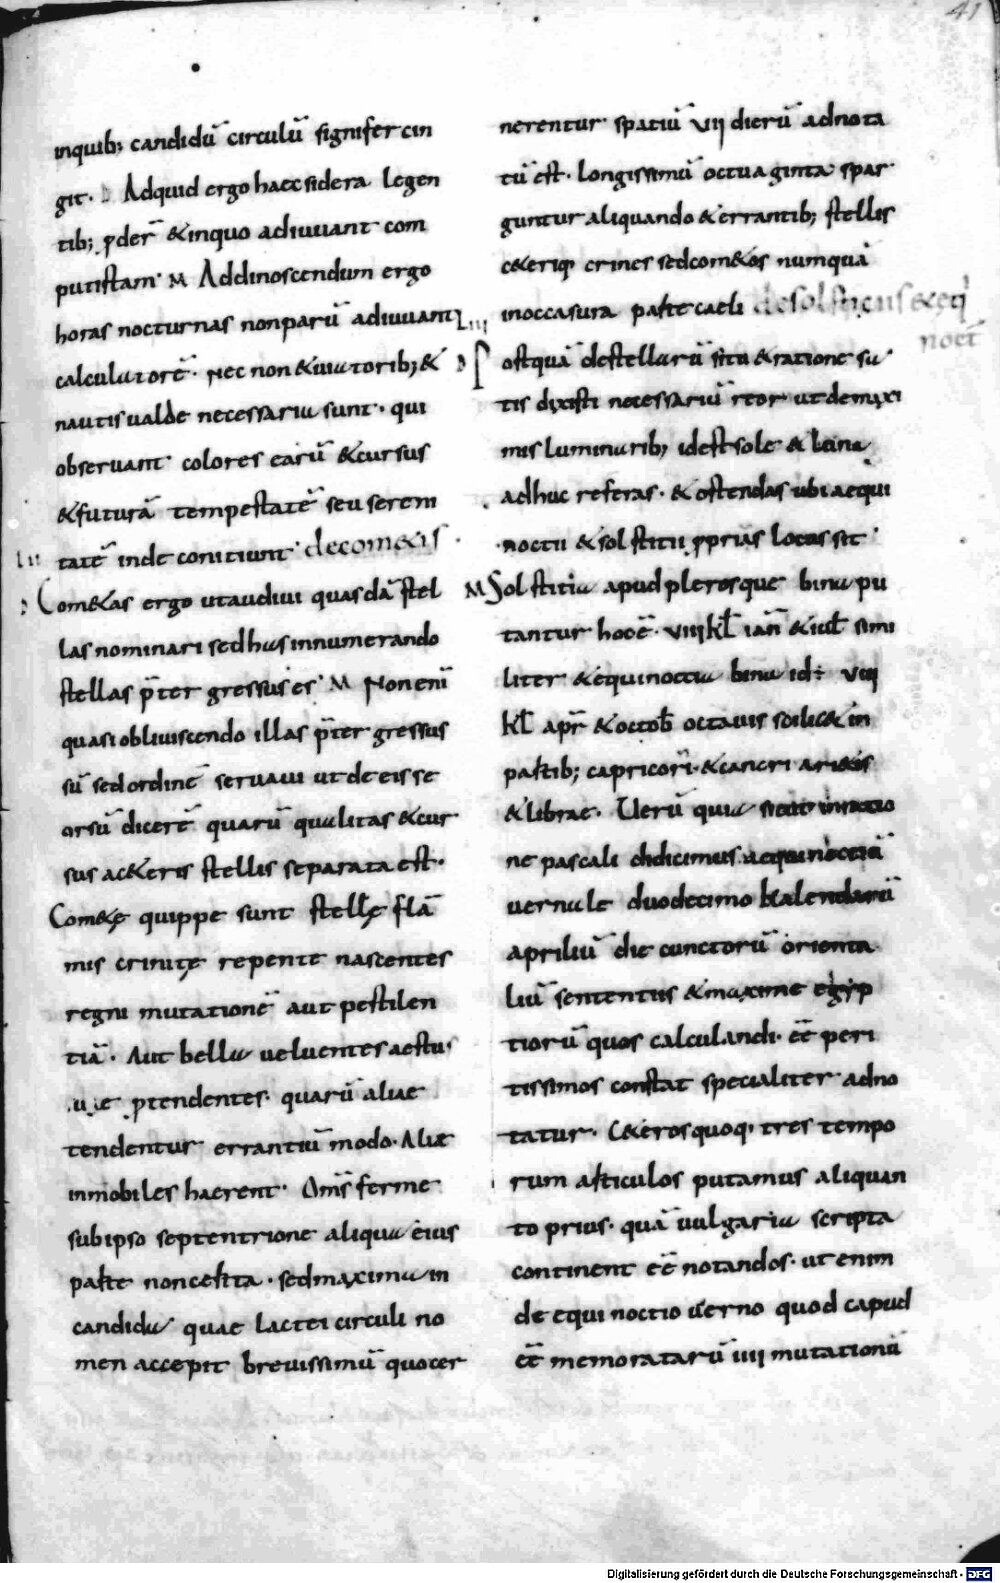 41
inquib; candidū circulū signifer cin
git. D Adquid ergo haec sidera legen
tib; ꝓder̄ & inquo adiuuant com
putistam. M Addinoscendum ergo
horas nocturnas nonparū adiuuant
calculatorē. Nec non & uiatorib; &
nautis ualde necessaria sunt. qui
obseruant colores earū & cursus
& futurā tempestatē seu sereni
LII tatē inde coniciunt. decom&is.
D Com&as ergo ut audiui quasdā stel
las nominari sed has innumerando
stellas p̄ter gressus es. M Non enī
quasi obliuiscendo illas p̄ter gressus
sū sed ordinē seruaui ut de eis se
orsū dicerē quarū qualitas & cur
sus a c&eris stellis separata est.
Com&ę quippe sunt stellę flā
mis crinitę repente nascentes
regni mutationē aut pestilen
tiā. Aut bella uel uentos aestus
ue ꝓtendentes. quarū aliae
tendentur errantiū modo. Aliae
inmobiles haerent. Om̄s ferme
sub ipso septentrione aliqua eius
parte non certa. sed maxima in
candida quae lactei circuli no
men accepit breuissimū quo cer
nerentur spatiū VII dierū adnota
tū est. longissimū octuaginta spar
guntur aliquando & errantib; stellis
c&erisq; crines sed com&os numquā
LIII inoccasura parte caeli desolsticiis & equ
noct̄
D Postquā destellarū situ & ratione sa
tis dixisti necessariū reor ut demaxi
mis luminarib; id est sole & luna
adhuc referas. & ostendas ubi aequi
noctii & solstitii ꝓprius locus sit.
M Solstitia apud plerosque bina pu
tantur hoc ē. VIII kł ian̄ & iuł simi
liter & equinoctia bina id ÷ VIII
kł apr̄ & octob̄ octauis scilic& in
partib; capricorn̄i. & cancri ari&is
& librae. Uerū quia sicut in ratio
ne pascali didicimus aequinoctiū
uernale duodecimo kalendarū
apriliū die cunctorū orienta
liū sententiis & maxime egyp
tiorū quos calculandi. ēē peri
tissimos constat specialiter adno
tatur. C&eros quoq; tres tempo
rum articulos putamus aliquan
to prius. quā uulgaria scripta
continent ēē notandos. ut enim
de equinoctio uerno quod capud
ēē memoratarū IIII mutationū
Digitalisierung gefördert durch die Deutsche Forschungsgemeinschaft - DFG